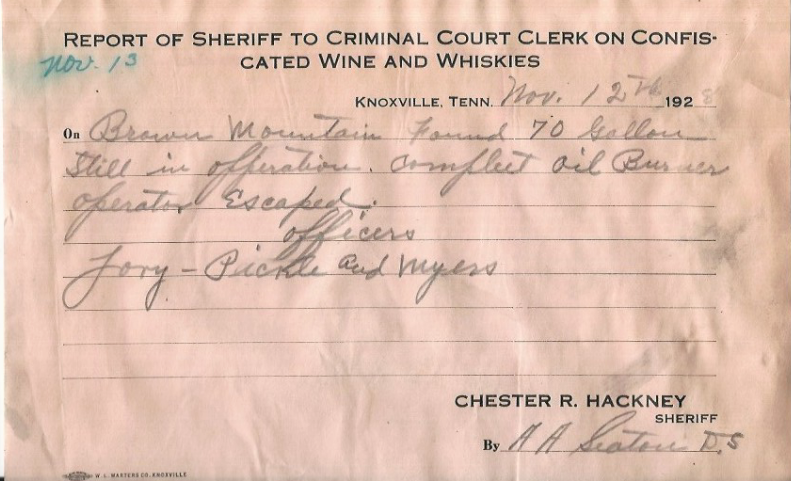 REPORT OF SHERIFF TO CRIMINAL COURT CLERK ON CONFIS-
CATED WINE AND WHISKIES
Nov. 13
KNOXVILLE, TENN. Nov. 12th 1928
On Brown Mountain Found 70 Gallon
Still in opperation. compleet oil Burner
operator Escaped.
officers
Lory - Pickle and Myers
CHESTER R. HACKNEY
SHERIFF
By A A Seaton D.S
W. L. MASTERS CO. KNOXVILLE